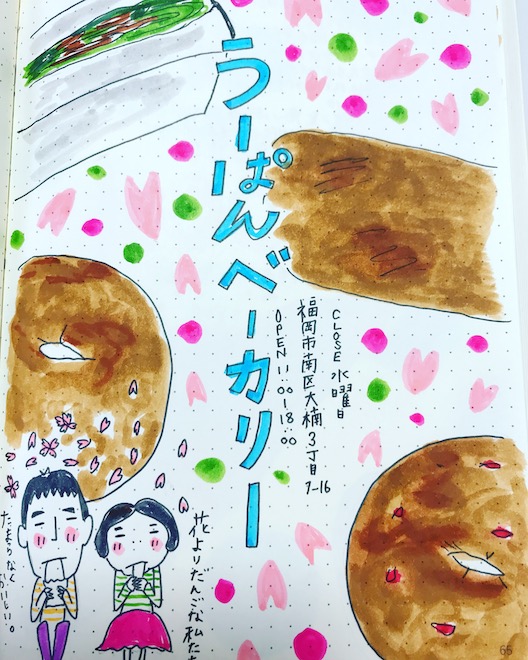 うーぱんベーカリー
CLOSE 水曜日
福岡市南区大楠3丁目7-16
OPEN 11:00-18:00
花よりだんごな私たち
たまらなくおいしい。
65